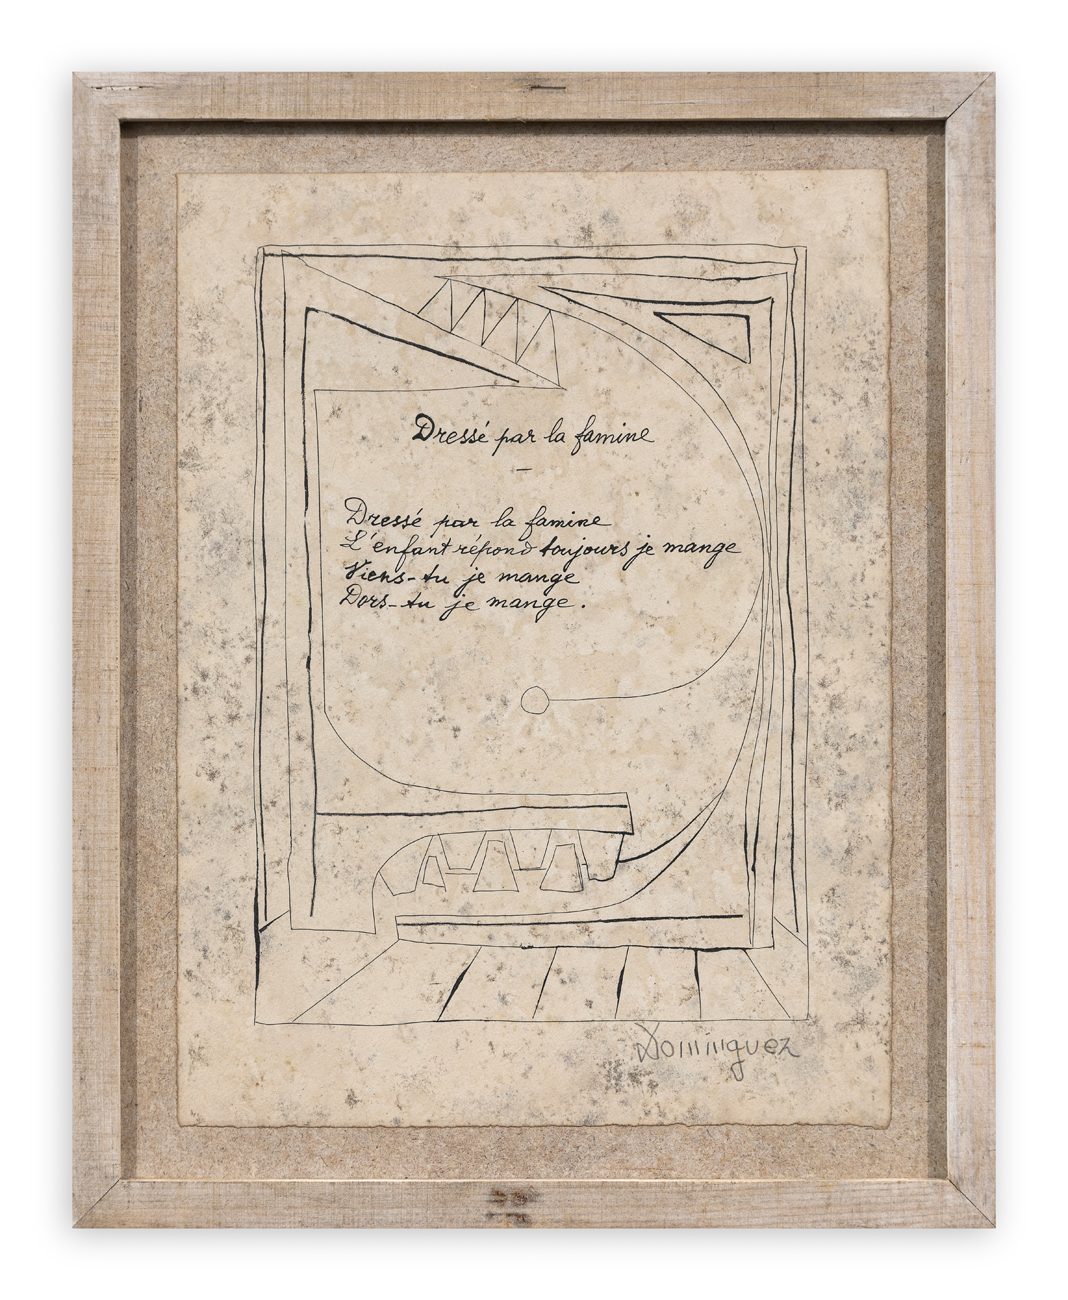 Dressé par la famine
—
Dressé par la famine
L'enfant répond toujours je mange
Viens-tu je mange
Dors-tu je mange.
Dominguez